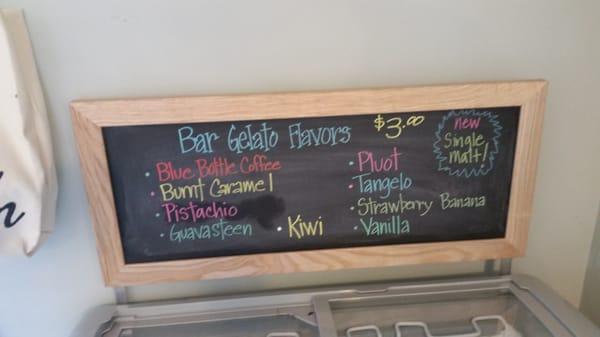 Bar Gelato Flavors $3.00
new
Single
malt!
• Blue Bottle Coffee
• Burnt Caramel
• Pistachio
• Guavasteen
• Kiwi
• Pluot
• Tangelo
• Strawberry Banana
• Vanilla